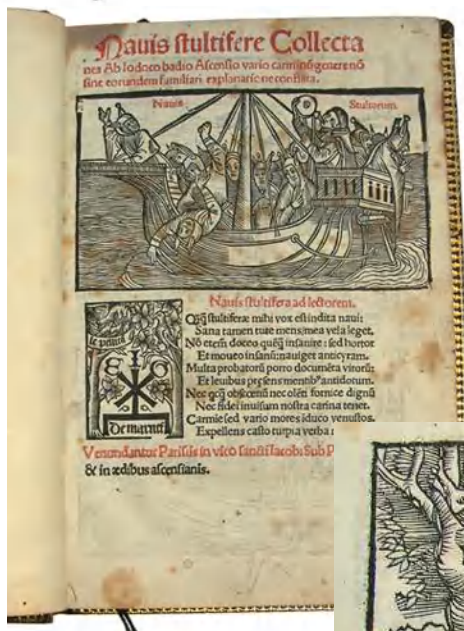 Nauis stultifere Collecta
nea Ab Iodoco badio Ascensio vario carminū genere nō
sine eorundem familiari explanatione conflata.
Nauis Stultorum.
Nauis stultifera ad lectorem.
Qq̄ stultiferæ mihi vox est indita naui:
Sana tamen tute mens/mea vela leget.
Nō etem doceo quēq̄ insanire: sed hortor
Et moueo insanū: nauiget anticyram.
Multa probatorū porro documēta virorū:
Et leuibus pręsens mentibꝰ antidotum.
Nec qcq̄ obscœnū nec olēti fornice dignū
Nec fidei inuisum nostra carina tenet.
Carmiē sed vario mores iduco venustos.
Expellens casto turpia verba:
le pelica
E I O
De marnef
Venundantur Parisiis in vico sancti Iacobi Sub P
& in ædibus ascensianis.